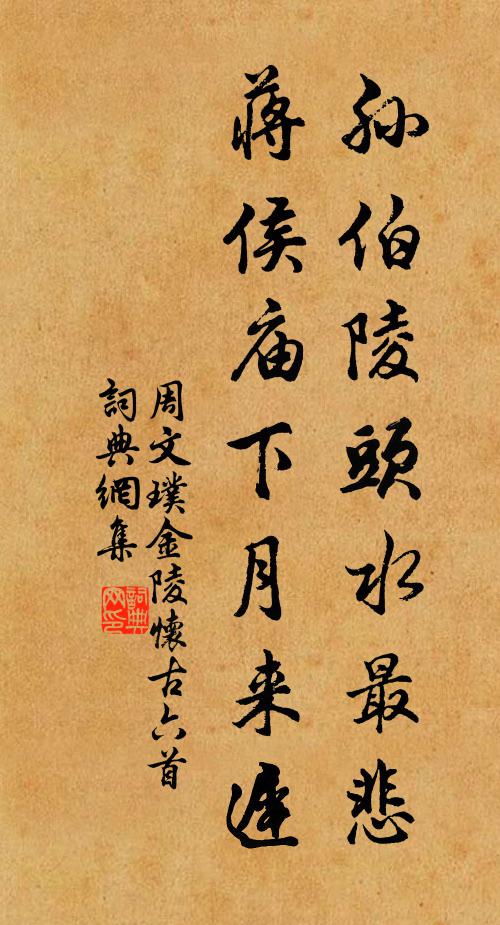 孙伯陵頭水最悲
蔣侯庙下月来遲
周文璞金陵懷古六首
詞典網集
詞典网印